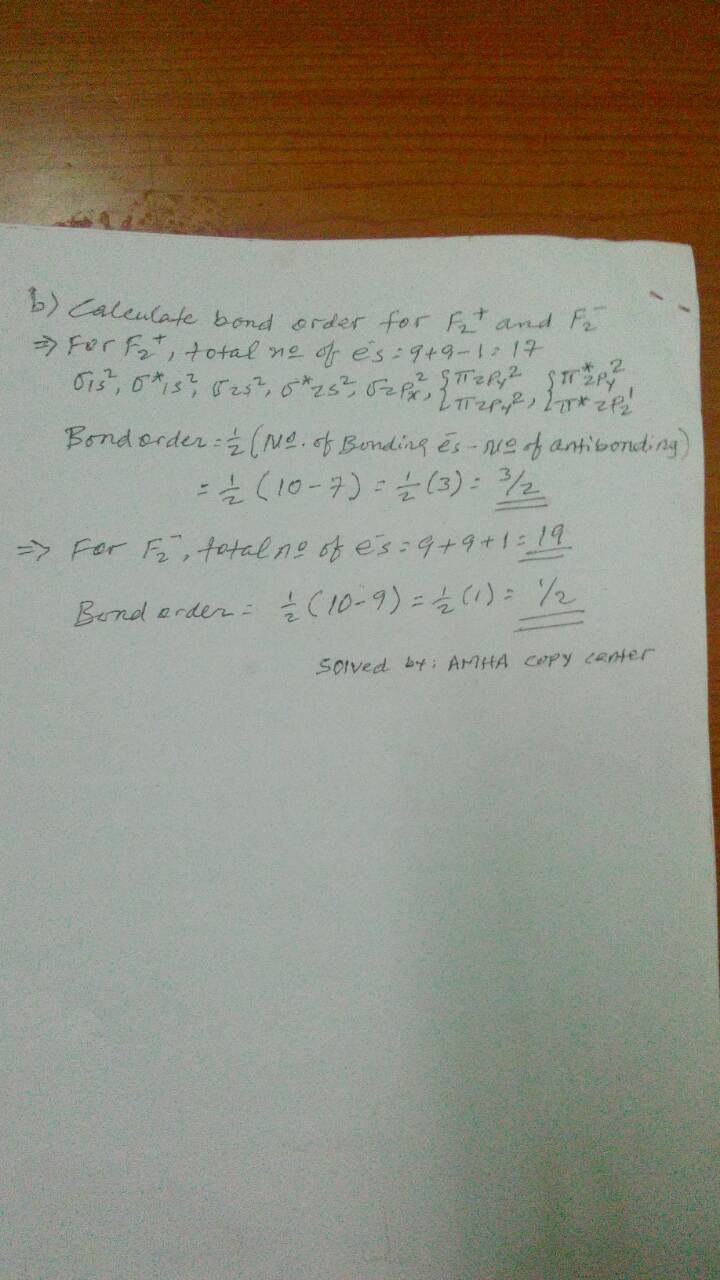 b) Calculate bond order for F₂⁺ and F₂⁻
⇒ For F₂⁺, total nº of e̅s = 9+9-1 = 17
σ1s², σ*1s², σ2s², σ*2s², σ2pₓ², {π2py², {π*2py²
π2py², π*2pz¹
Bond order = 1/2 (Nº. of Bonding e̅s - Nº of antibonding)
= 1/2 (10-7) = 1/2 (3) = 3/2
⇒ For F₂⁻, total nº of e̅s = 9+9+1 = 19
Bond order = 1/2 (10-9) = 1/2 (1) = 1/2
Solved by: AMHA copy center